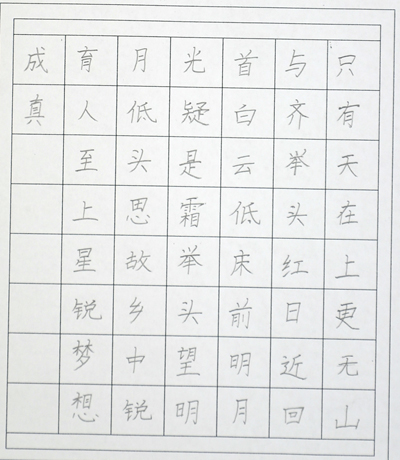 只有天在上更无山
与齐举头红日近回
首白云低床前明月
光疑是霜举头望明
月低头思故乡中锐
育人至上星锐梦想
成真